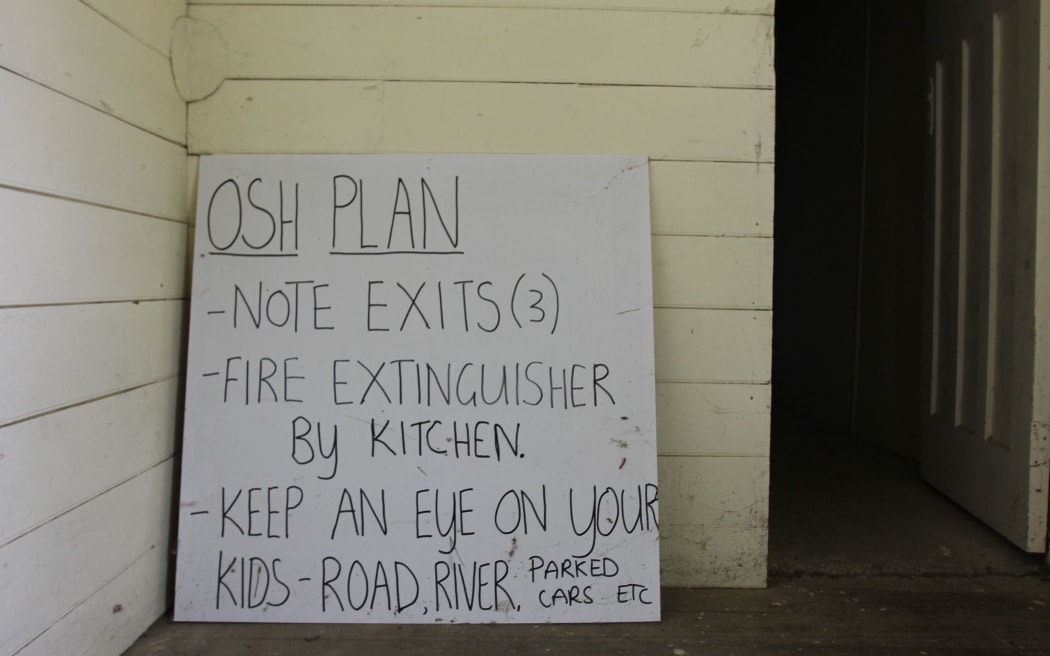 OSH PLAN
-NOTE EXITS (3)
-FIRE EXTINGUISHER
BY KITCHEN.
-KEEP AN EYE ON YOUR
KIDS-ROAD, RIVER, PARKED
CARS ETC